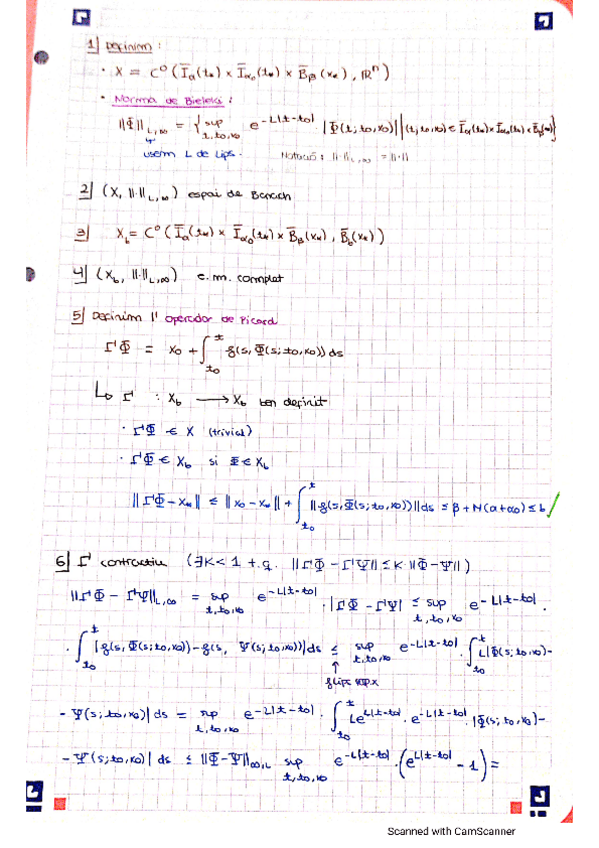 1) Definim:
· X = C⁰(Ī_a(t*) × Ī_α₀(t*) × B̄_β(x*), ℝⁿ)
· Norma de Bielecki:
||Φ||_{L,∞} = { sup_{t,t₀,x₀} e^{-L|t-t₀|} · |Φ(t;t₀,x₀)| | (t,t₀,x₀) ∈ Ī_a(t*) × Ī_α₀(t*) × B̄_β(x*)}
usem L de Lips. Notació: ||·||_{L,∞} = ||·||
2) (X, ||·||_{L,∞}) espai de Banach
3) X_b = C⁰(Ī_a(t*) × Ī_α₀(t*) × B̄_β(x*), B̄_b(x*))
4) (X_b, ||·||_{L,∞}) e.m. complet
5) Definim l'operador de Picard
ΓΦ = x₀ + ∫_{t₀}^{t} f(s, Φ(s;t₀,x₀)) ds
↳ Γ : X_b ⟶ X_b ben definit
· ΓΦ ∈ X (trivial)
· ΓΦ ∈ X_b si Φ ∈ X_b
||ΓΦ - x*|| ≤ ||x₀ - x*|| + ∫_{t₀}^{t} ||f(s, Φ(s;t₀,x₀))|| ds ≤ β + M(a+α₀) ≤ b ✓
6) Γ contractiu (∃K<1 t.q. ||ΓΦ - ΓΨ|| ≤ K ||Φ - Ψ||)
||ΓΦ - ΓΨ||_{L,∞} = sup_{t,t₀,x₀} e^{-L|t-t₀|} · |ΓΦ - ΓΨ| ≤ sup_{t,t₀,x₀} e^{-L|t-t₀|} ·
· ∫_{t₀}^{t} |f(s, Φ(s;t₀,x₀)) - f(s, Ψ(s;t₀,x₀))| ds ≤ sup_{t,t₀,x₀} e^{-L|t-t₀|} · ∫_{t₀}^{t} L|Φ(s;t₀,x₀) -
f Lips resp. x
- Ψ(s;t₀,x₀)| ds = sup_{t,t₀,x₀} e^{-L|t-t₀|} · ∫_{t₀}^{t} L e^{L|t-t₀|} · e^{-L|t-t₀|} · |Φ(s;t₀,x₀) -
- Ψ(s;t₀,x₀)| ds ≤ ||Φ - Ψ||_{∞,L} sup_{t,t₀,x₀} e^{-L|t-t₀|} · (e^{L|t-t₀|} - 1) =
Scanned with CamScanner